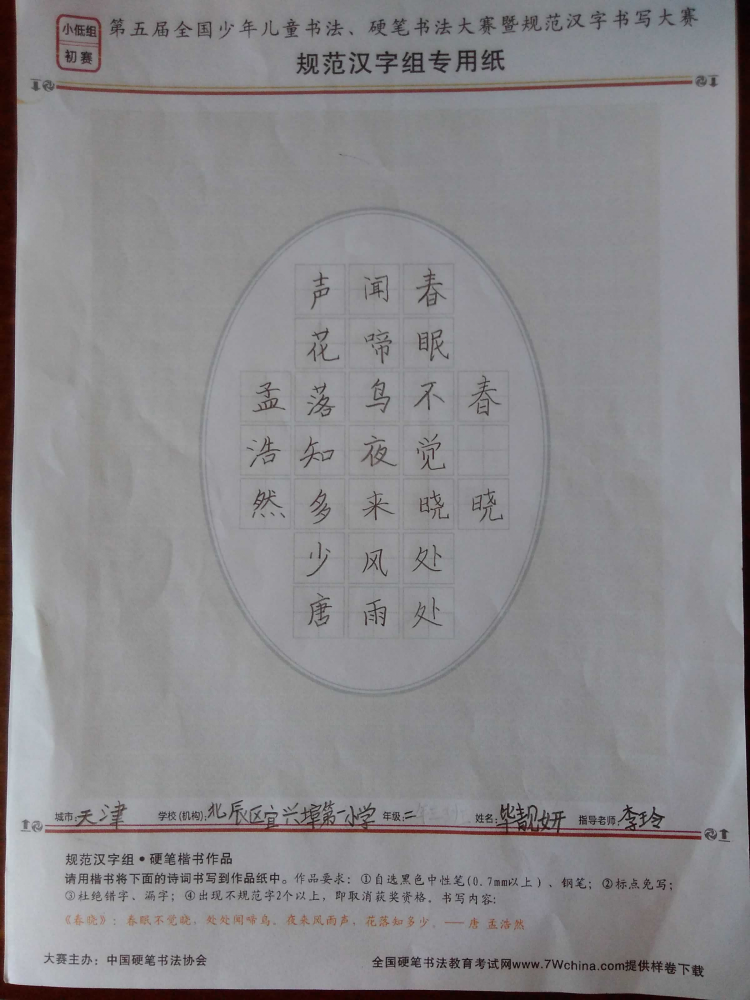 小低组
初赛
第五届全国少年儿童书法、硬笔书法大赛暨规范汉字书写大赛
规范汉字组专用纸
春晓
春眠不觉晓处处
闻啼鸟夜来风雨
声花落知多少唐
孟浩然
城市:天津 学校(机构):北辰区宜兴埠第一小学 年级:二 姓名:毕靓妍 指导老师:李玲
规范汉字组•硬笔楷书作品
请用楷书将下面的诗词书写到作品纸中。作品要求：①自选黑色中性笔(0.7mm以上)、钢笔；②标点免写；
③杜绝错字、漏字；④出现不规范字2个以上，即取消获奖资格。书写内容:
《春晓》：春眠不觉晓，处处闻啼鸟。夜来风雨声，花落知多少。——唐 孟浩然
大赛主办：中国硬笔书法协会 全国硬笔书法教育考试网www.7Wchina.com提供样卷下载